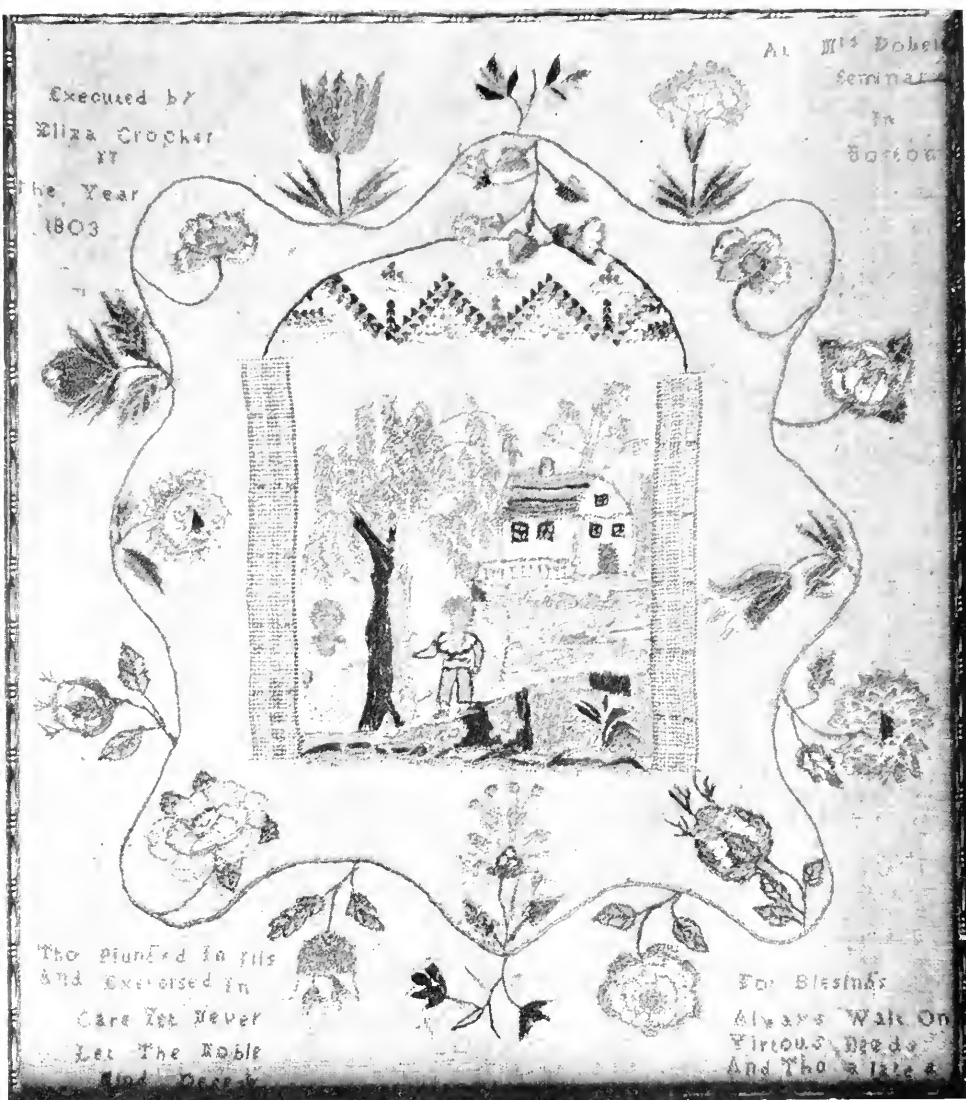 Executed by
Eliza Crocker
IT
the Year
1803
At Mrs Dobel
Seminar
In
Boston
Tho Plunged In Ills
And Exercised In
Care Yet Never
Let The Noble
Mind
For Blesings
Always Wait On
Virtous Deeds
And Tho a late a